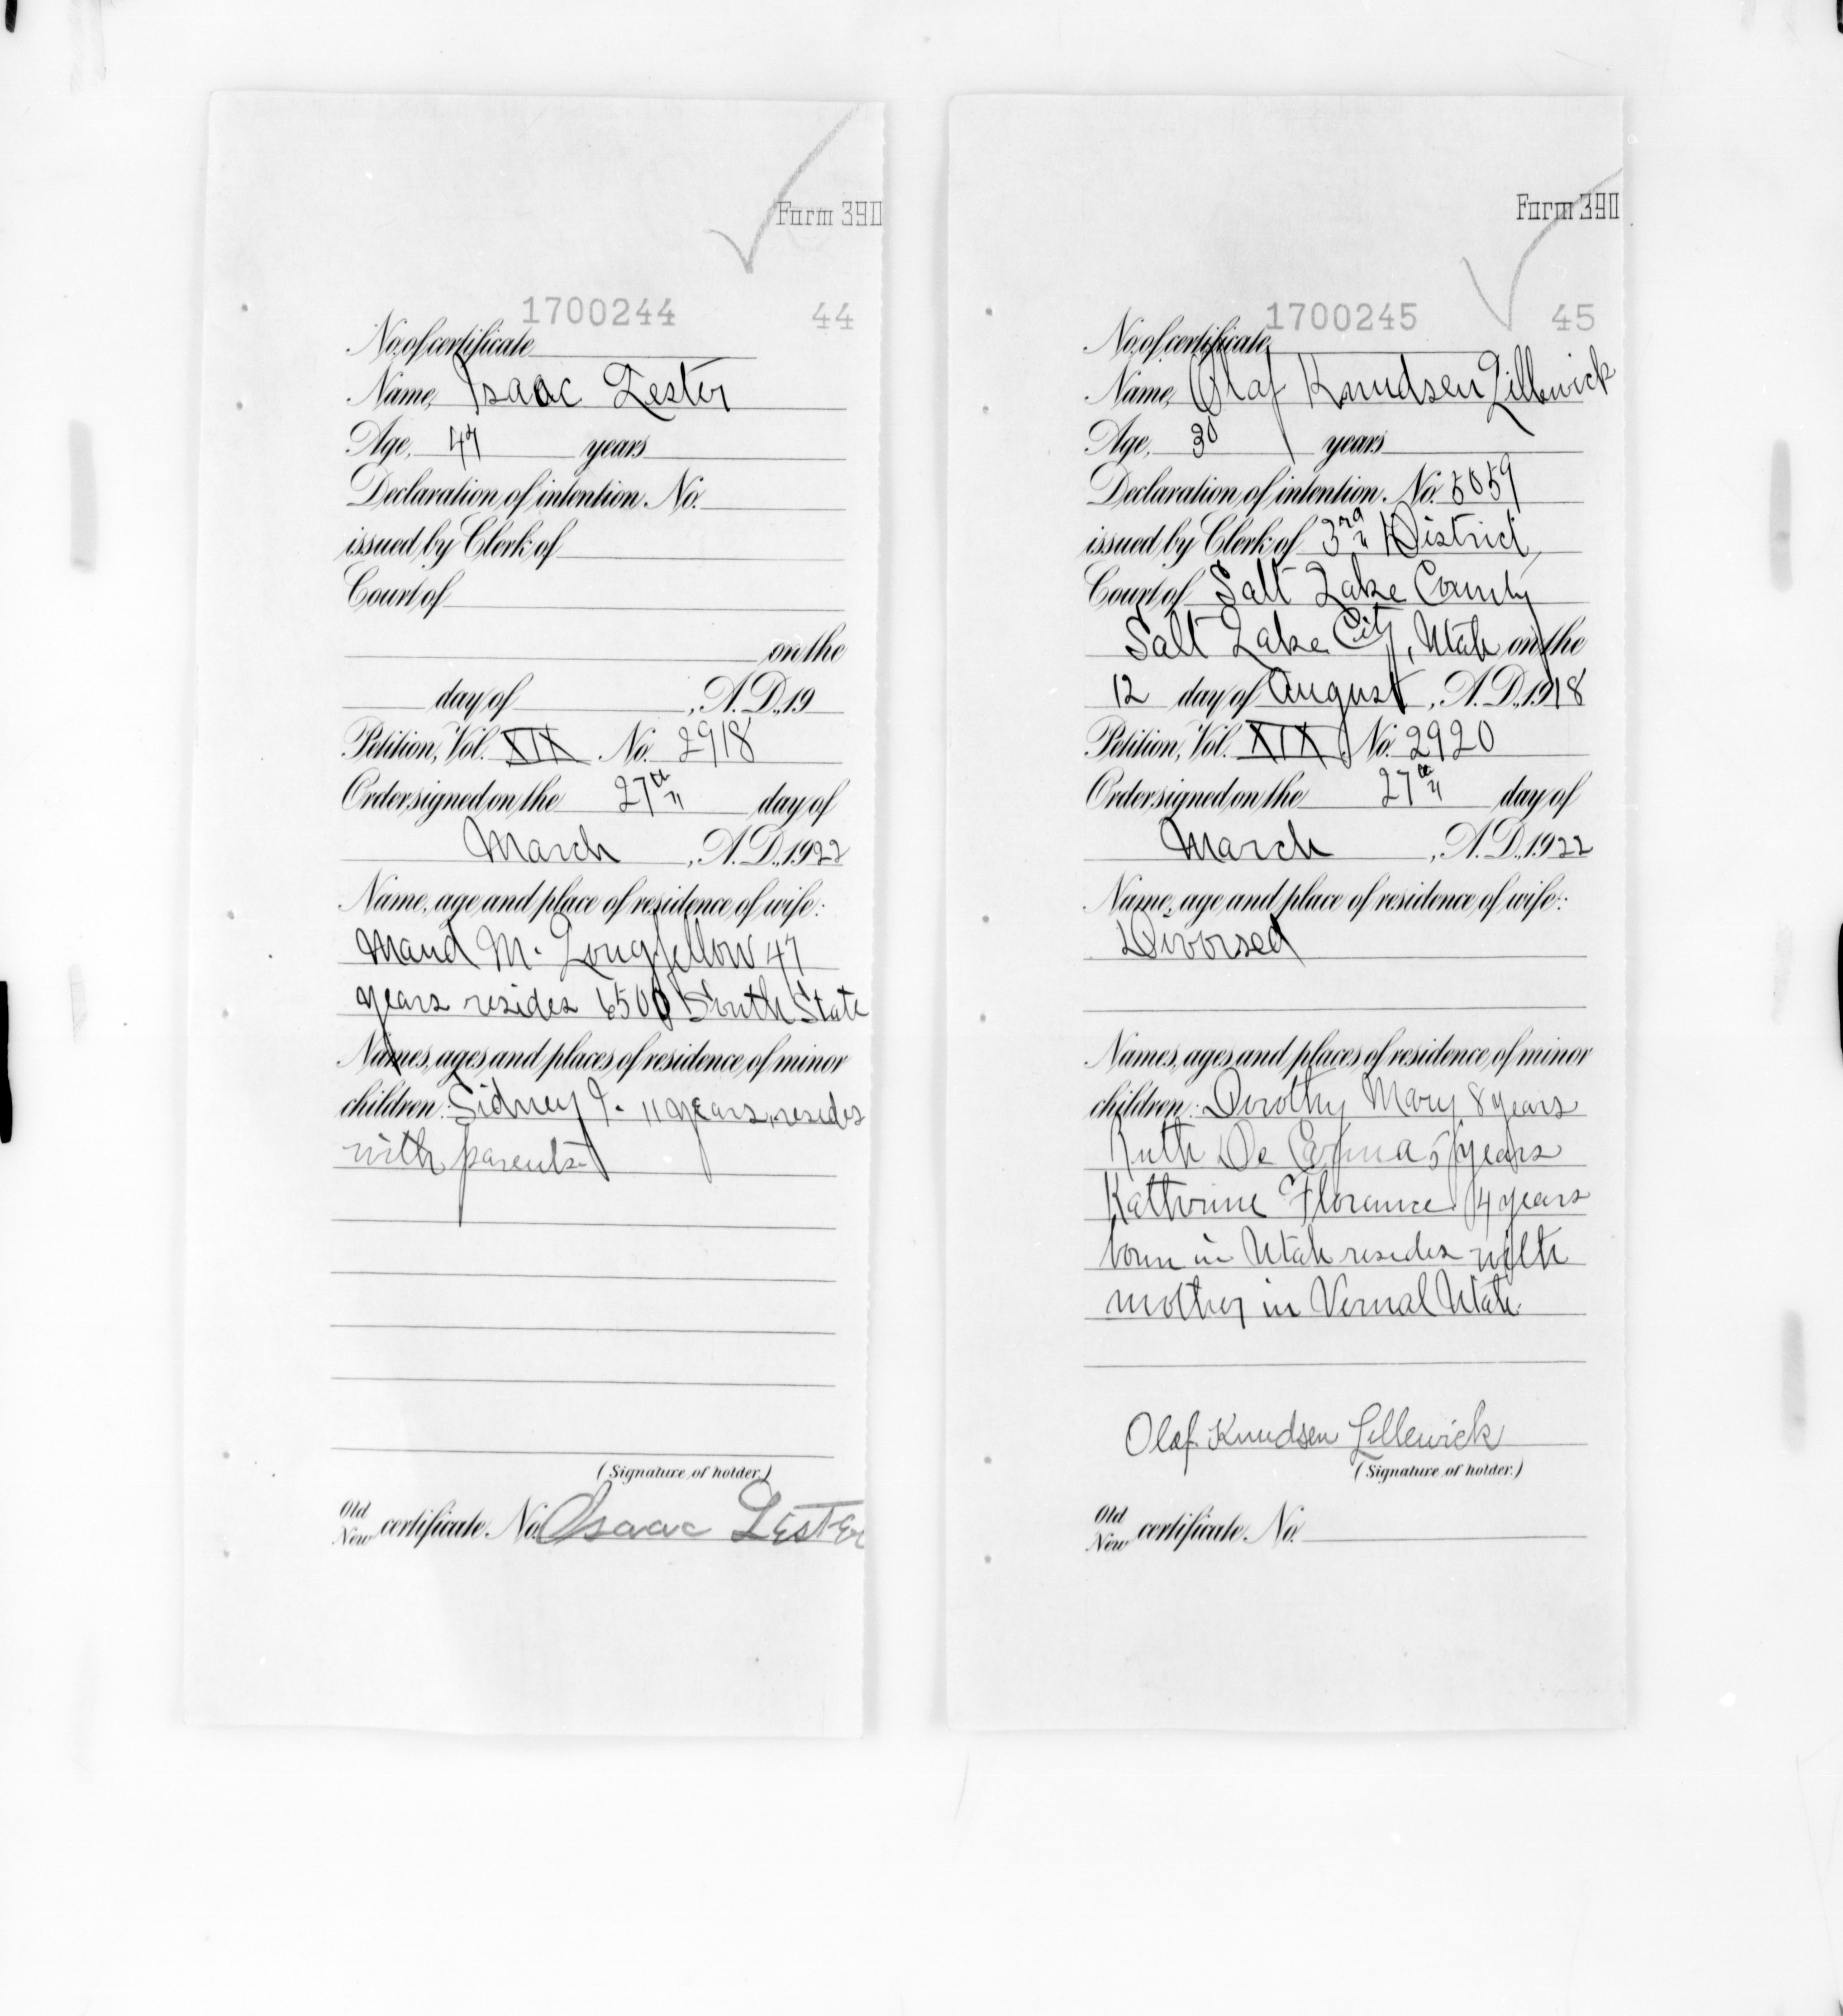 Form 390
1700244 44
No. of certificate
Name, Isaac Lester
Age, 47 years
Declaration of intention, No.
issued by Clerk of
Court of
on the
day of , A.D., 19
Petition, Vol. XIX No. 2918
Order signed on the 27th day of
March , A.D., 1922
Name, age and place of residence of wife:
Maud M. Longfellow 47
years resides 6500 South State
Names, ages and places of residence of minor
children: Sidney I. 11 years, resides
with parents
(Signature of holder.)
Old
New certificate No. Isaac Lester
Form 390
1700245 45
No. of certificate
Name, Olaf Knudsen Lillewick
Age, 30 years
Declaration of intention, No. 5059
issued by Clerk of 3rd District
Court of Salt Lake County
Salt Lake City, Utah on the
12 day of August , A.D., 1918
Petition, Vol. XIX No. 2920
Order signed on the 27th day of
March , A.D., 1922
Name, age and place of residence of wife:
Divorsed
Names, ages and places of residence of minor
children: Dorothy Mary 8 years
Ruth De 5 years
Kathrine Florence 4 years
born in Utah resides with
mother in Vernal Utah.
Olaf Knudsen Lillewick
(Signature of holder.)
Old
New certificate No.